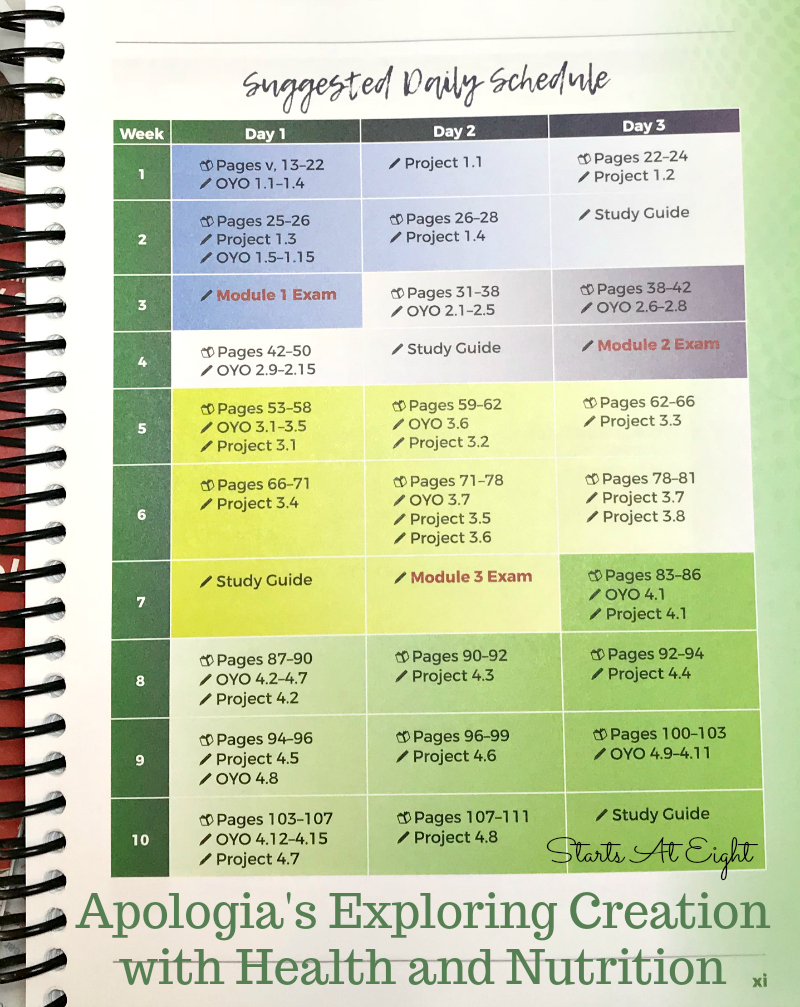 Suggested Daily Schedule
Week Day 1 Day 2 Day 3
1
Pages v, 13–22
OYO 1.1–1.4
Project 1.1
Pages 22–24
Project 1.2
2
Pages 25–26
Project 1.3
OYO 1.5–1.15
Pages 26–28
Project 1.4
Study Guide
3
Module 1 Exam
Pages 31–38
OYO 2.1–2.5
Pages 38–42
OYO 2.6–2.8
4
Pages 42–50
OYO 2.9–2.15
Study Guide
Module 2 Exam
5
Pages 53–58
OYO 3.1–3.5
Project 3.1
Pages 59–62
OYO 3.6
Project 3.2
Pages 62–66
Project 3.3
6
Pages 66–71
Project 3.4
Pages 71–78
OYO 3.7
Project 3.5
Project 3.6
Pages 78–81
Project 3.7
Project 3.8
7
Study Guide
Module 3 Exam
Pages 83–86
OYO 4.1
Project 4.1
8
Pages 87–90
OYO 4.2–4.7
Project 4.2
Pages 90–92
Project 4.3
Pages 92–94
Project 4.4
9
Pages 94–96
Project 4.5
OYO 4.8
Pages 96–99
Project 4.6
Pages 100–103
OYO 4.9–4.11
10
Pages 103–107
OYO 4.12–4.15
Project 4.7
Pages 107–111
Project 4.8
Study Guide
Starts At Eight
Apologia's Exploring Creation
with Health and Nutrition
xi